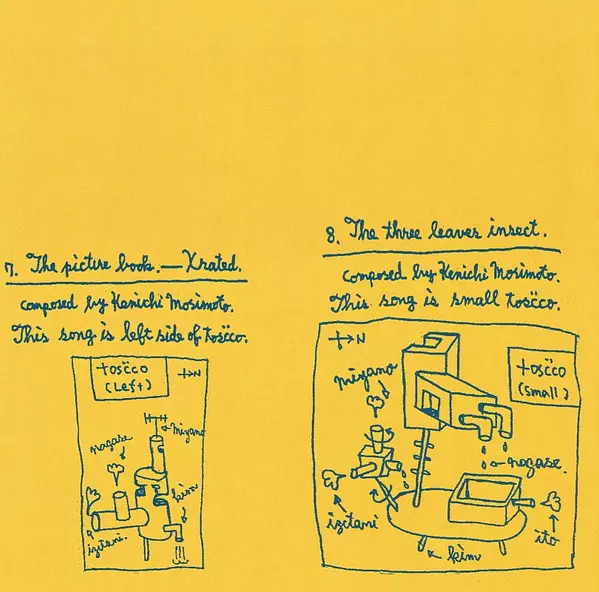 7. The picture book. — Xrated.
composed by Kenichi Morimoto.
This song is left side of toscco.
toscco
(Left)
N
miyano
nagase
kim
izitani.
8. The three leaves insect.
composed by Kenichi Morimoto.
This song is small toscco.
N
toscco
(small)
miyano
nagase.
izitani
ito
kim